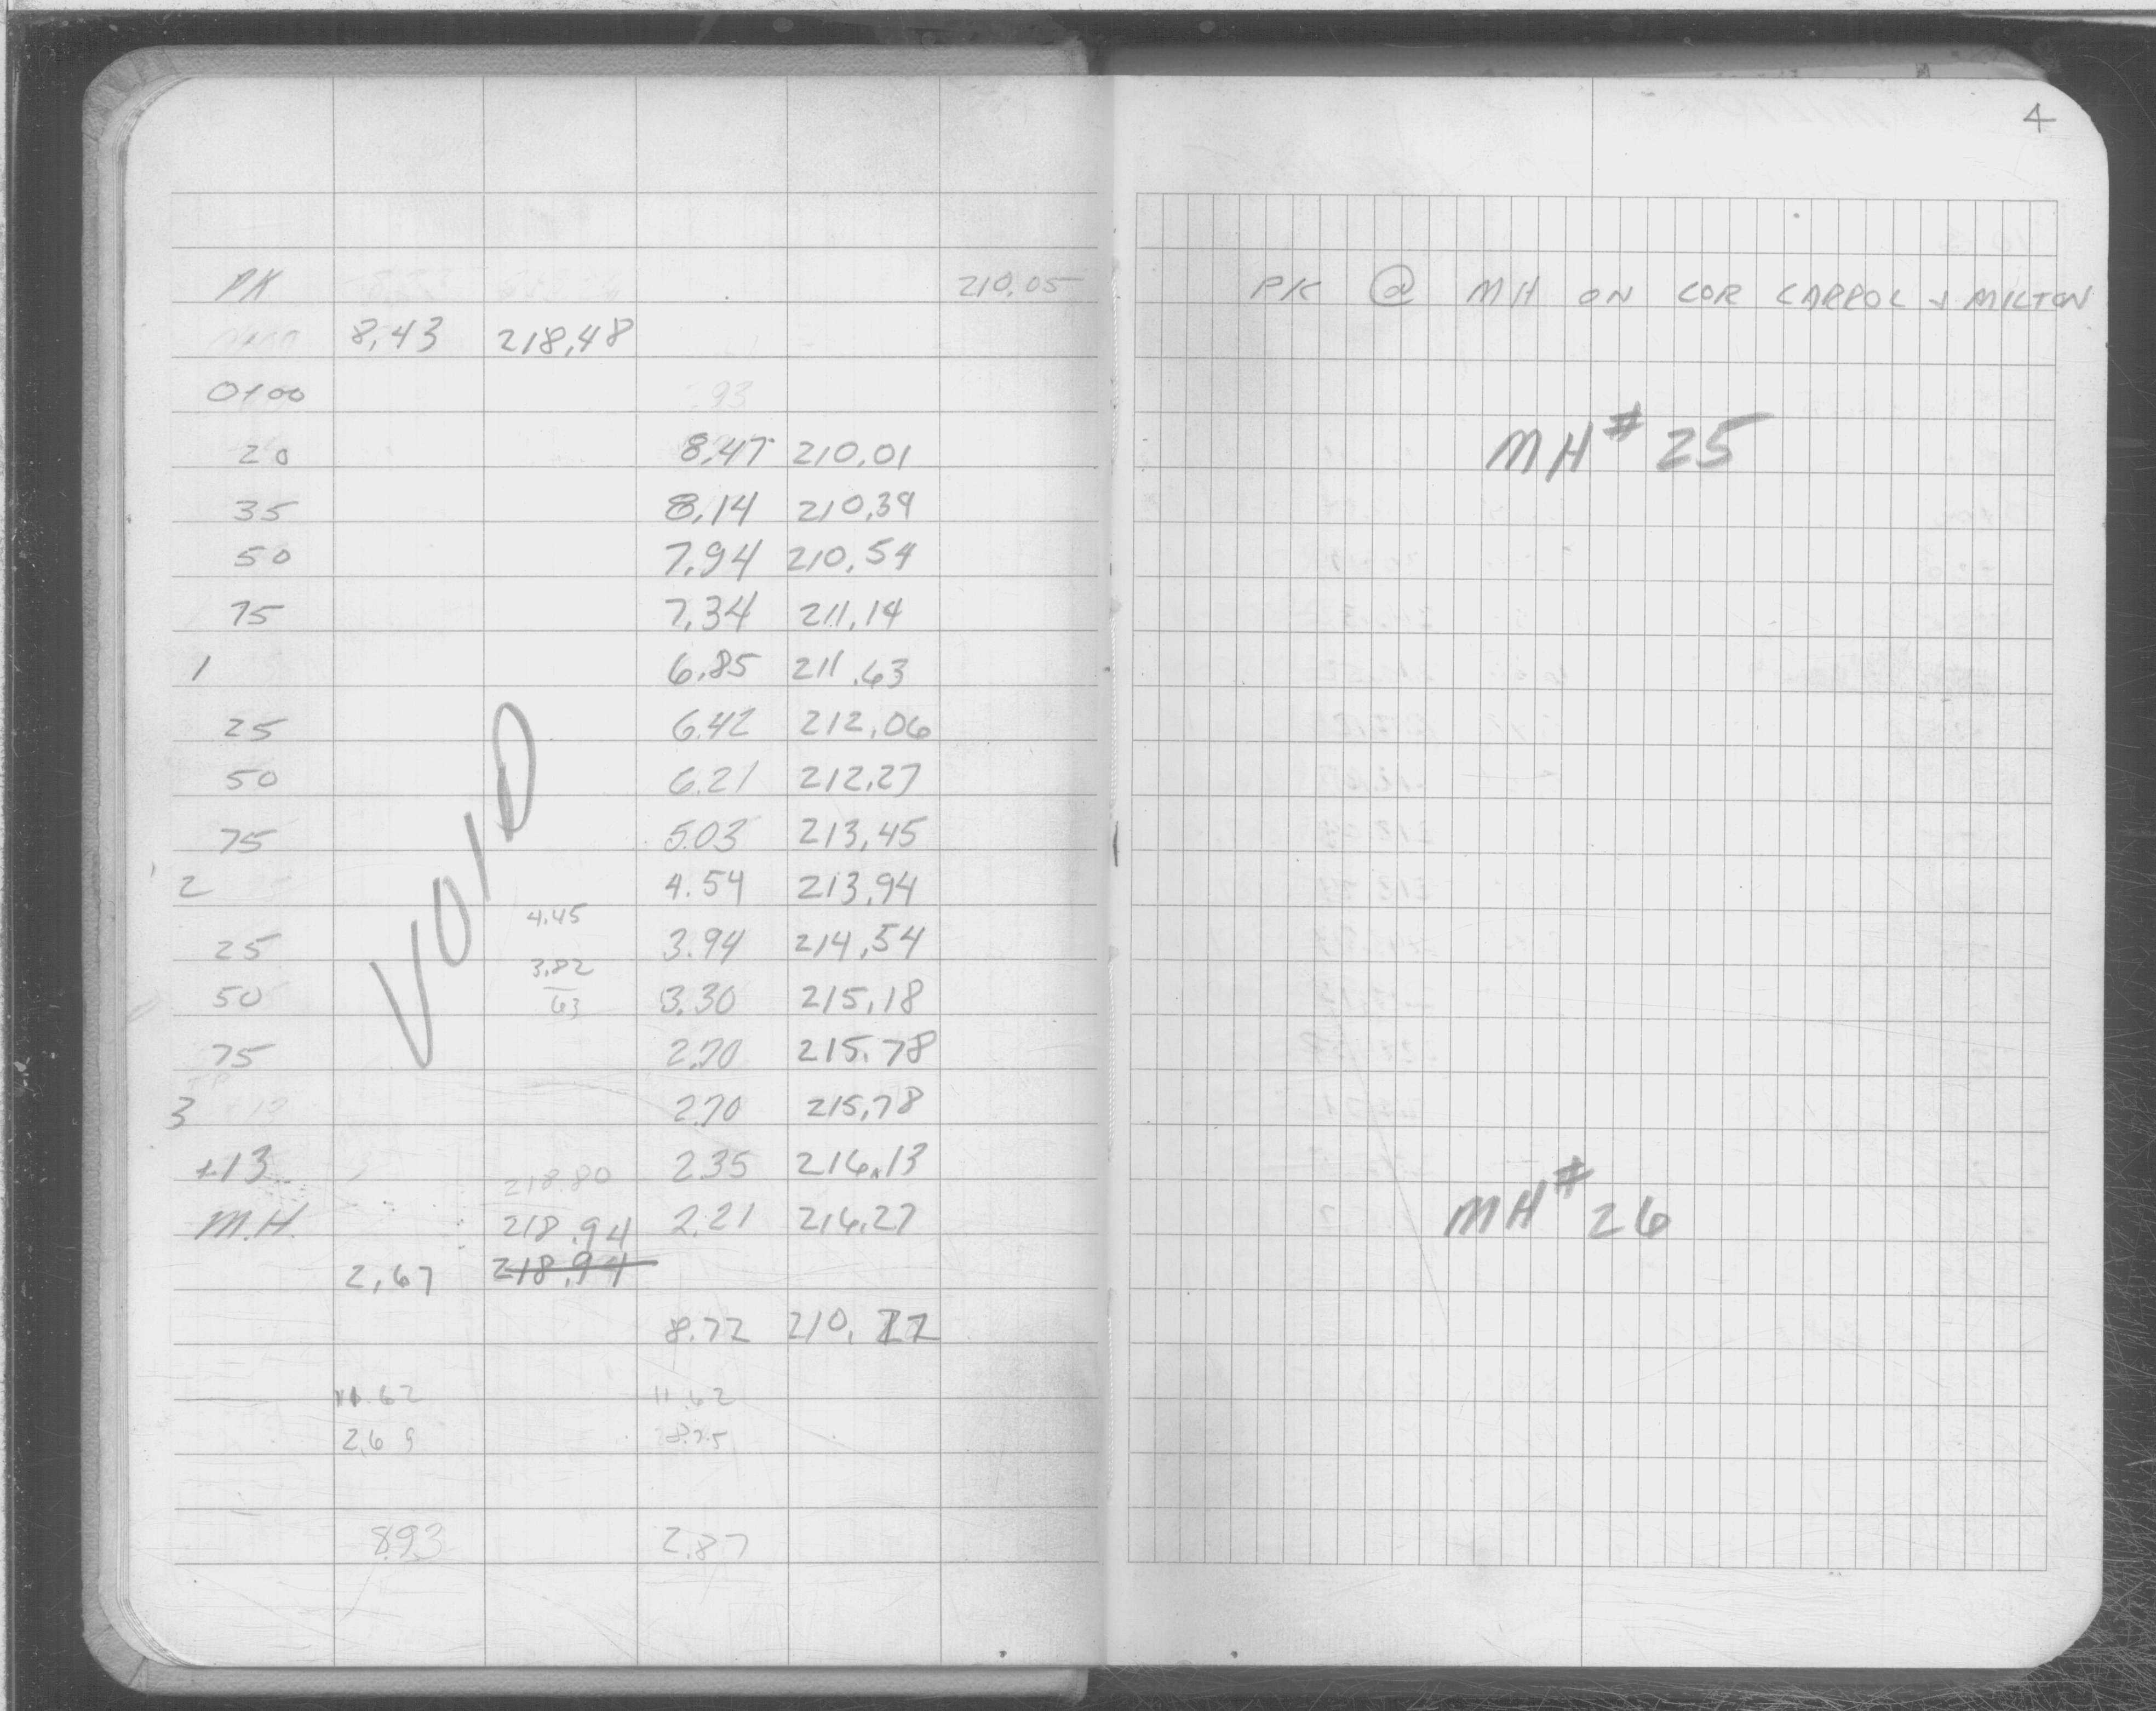 4
PK 210.05 PK @ MH ON COR CARROL & MILTON
8.43 218.48
0+00 .93
20 8.47 210.01 MH# 25
35 8.14 210.34
50 7.94 210.54
75 7.34 211.14
1 6.85 211.63
25 6.42 212.06
50 6.21 212.27
75 5.03 213.45
2 4.54 213.94
4.45
25 3.94 214.54
3.82
50 63 3.30 215.18
75 2.70 215.78
VOID
3 2.70 215.78
+13 218.80 2.35 216.13
M.H. 218.94 2.21 216.27 MH# 26
2.67 218.94
8.72 210.22
11.62 11.62
2.69 8.75
8.93 2.87